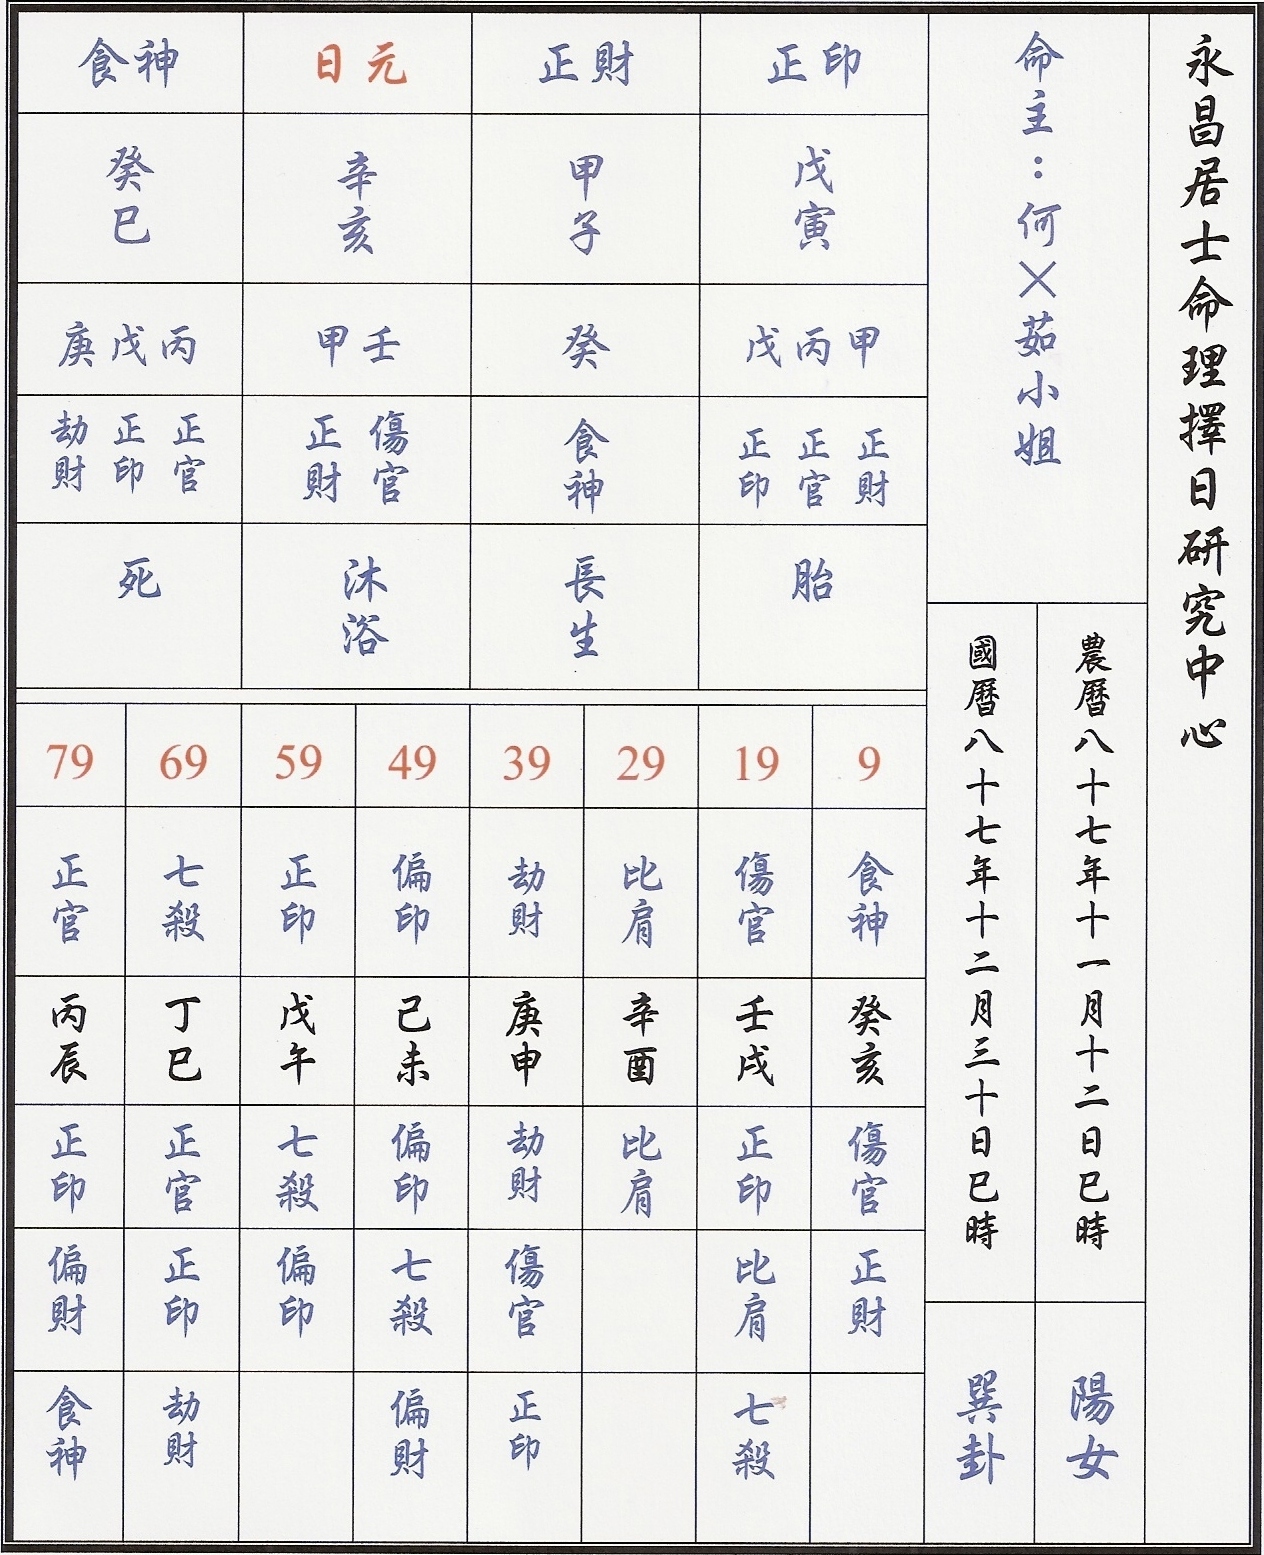 永昌居士命理擇日研究中心
命主：何×茹小姐
農曆八十七年十一月十二日巳時
國曆八十七年十二月三十日巳時
陽女
巽卦
食神 日元 正財 正印
癸巳 辛亥 甲子 戊寅
庚戊丙 甲壬 癸 戊丙甲
劫財 正印 正官 正財 傷官 食神 正印 正官 正財
死 沐浴 長生 胎
79 69 59 49 39 29 19 9
正官 七殺 正印 偏印 劫財 比肩 傷官 食神
丙辰 丁巳 戊午 己未 庚申 辛酉 壬戌 癸亥
正印 正官 七殺 偏印 劫財 比肩 正印 傷官
偏財 正印 偏印 七殺 傷官 比肩 正財
食神 劫財 偏財 正印 七殺